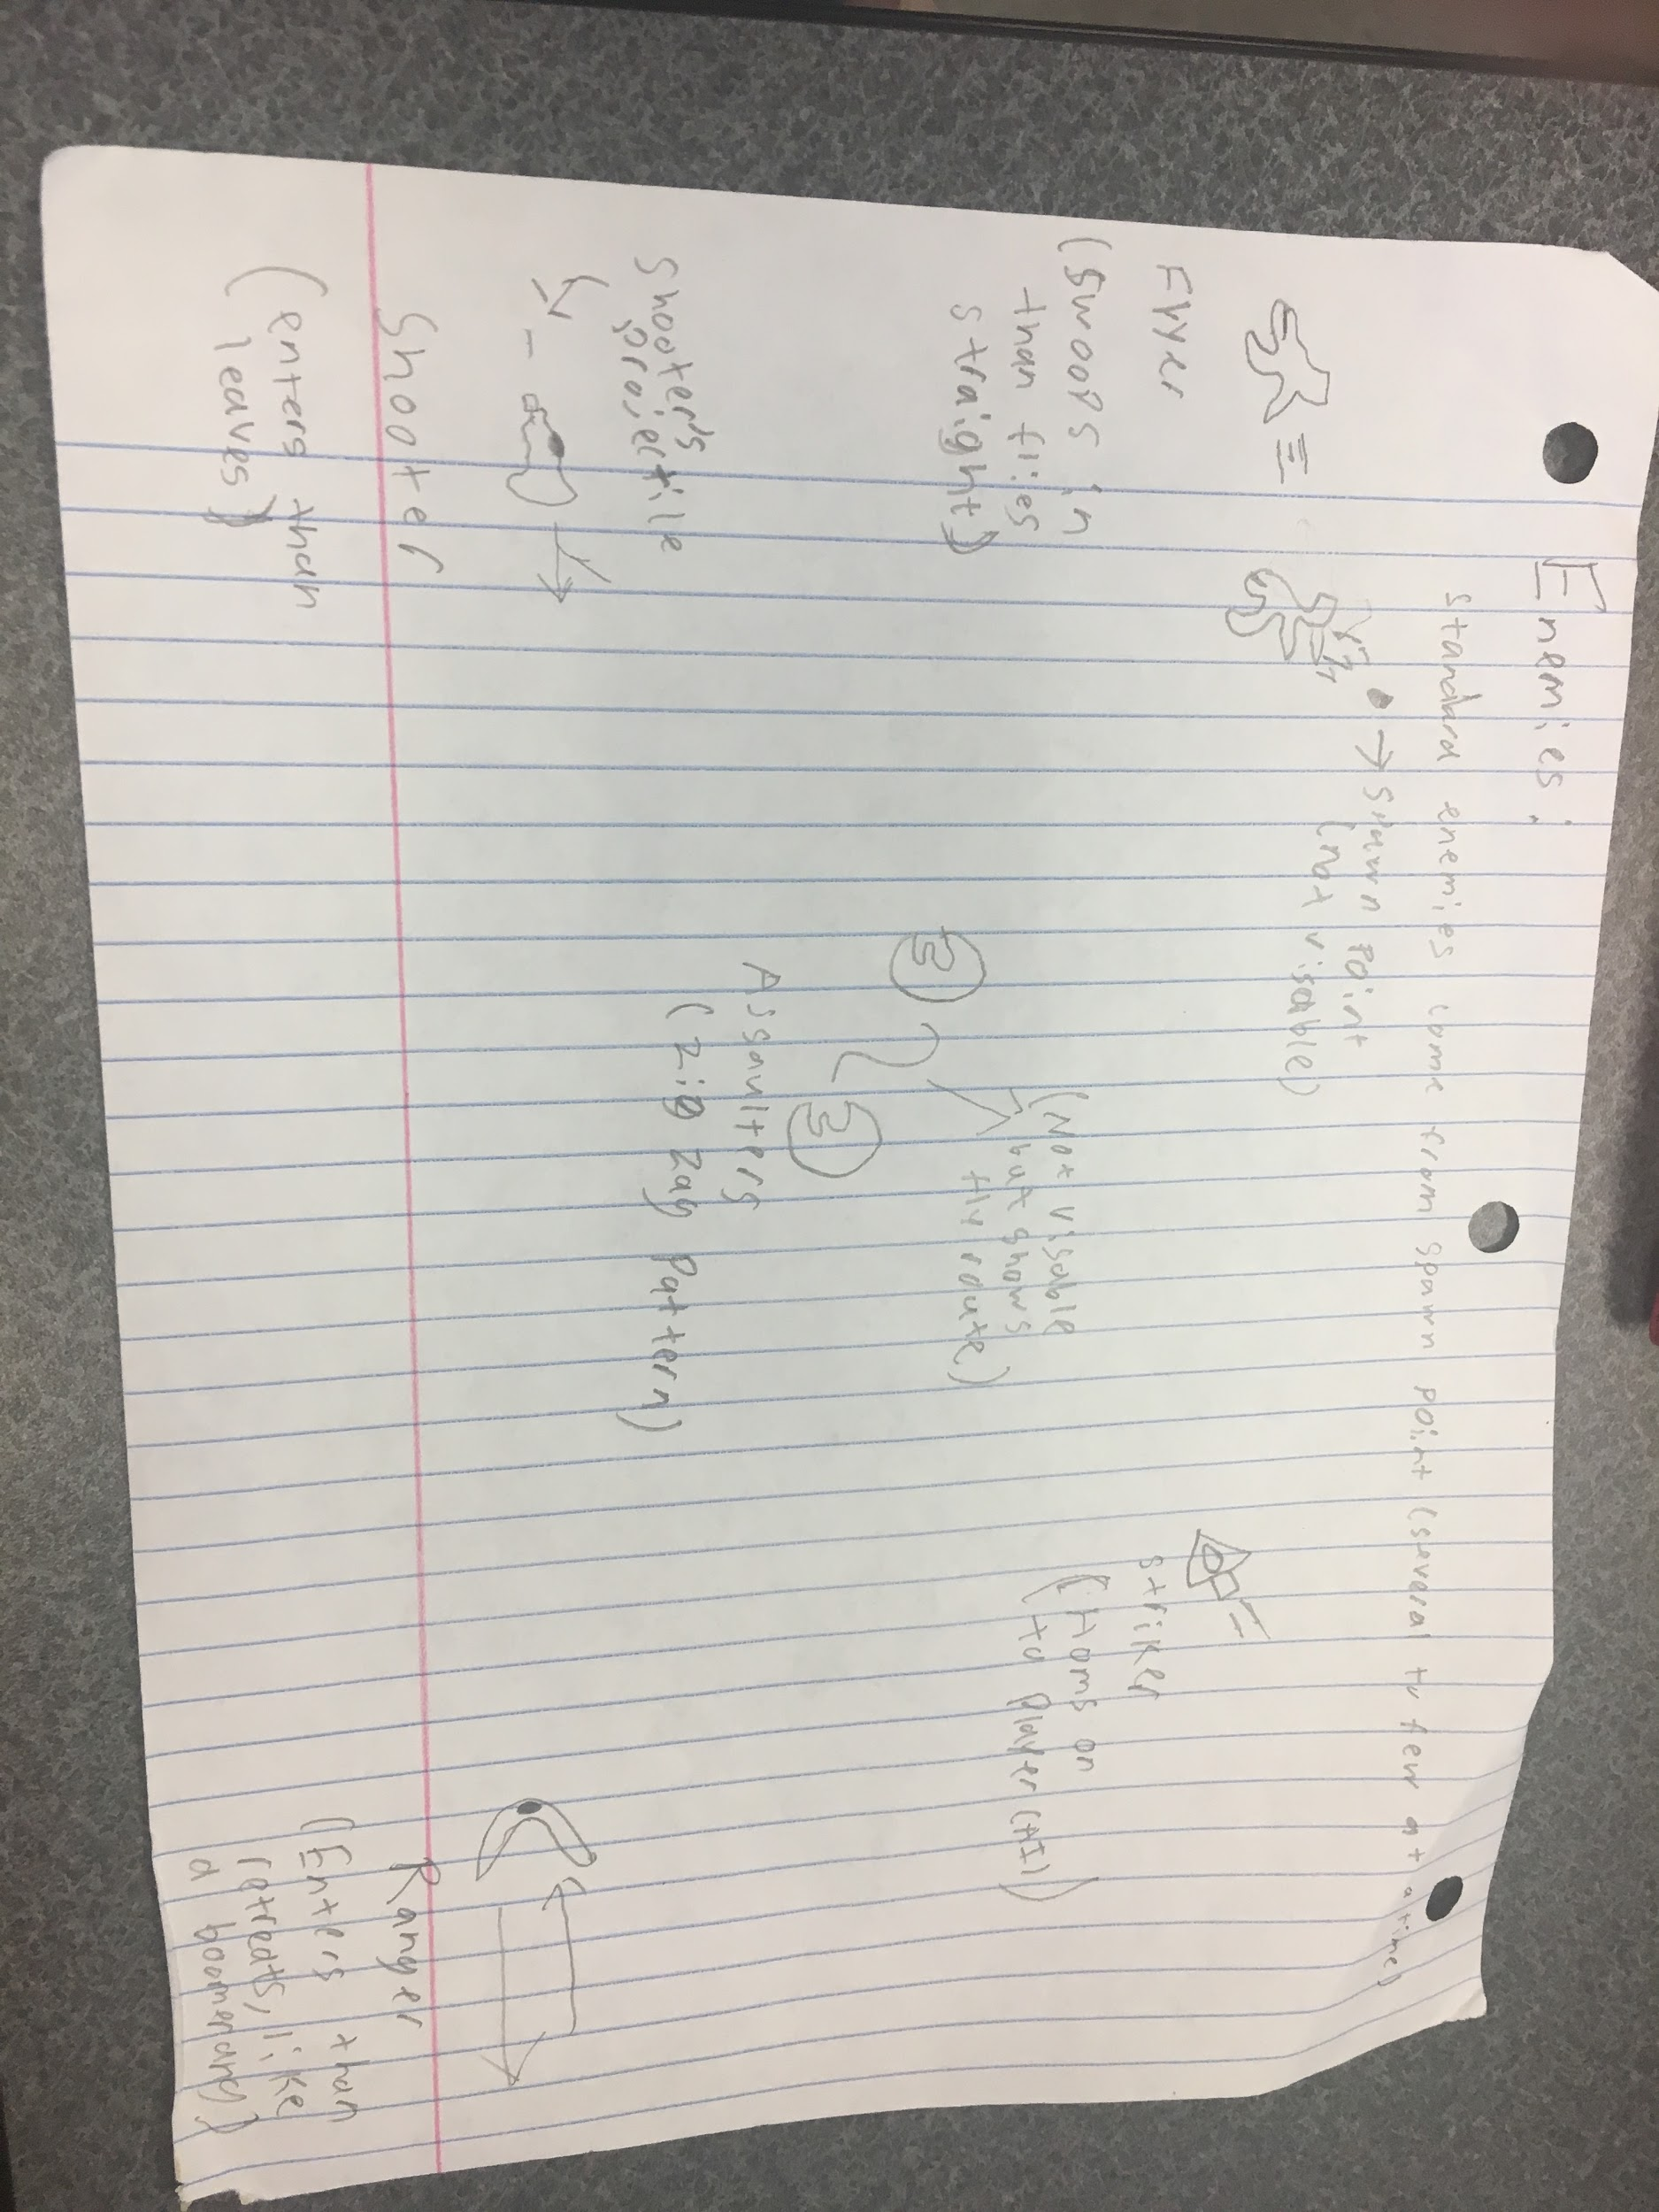 Enemies:
Standard enemies come from spawn point (several to few at a time)
Spawn point
(not visable)
Flyer
(swoops in
than flies
straight)
(Not visable
but shows
fly route)
Assaulters
(zig zag pattern)
Striker
(homs on
to player (AI))
Shooter's
projectile
Shooter
(enters than
leaves)
Ranger
(Enters than
retreats, like
a boomerang)